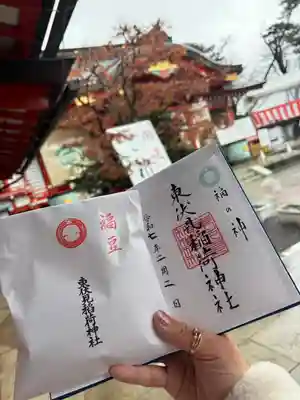 福の神
東伏見稲荷神社
令和七年二月二日
福豆
東伏見稲荷神社